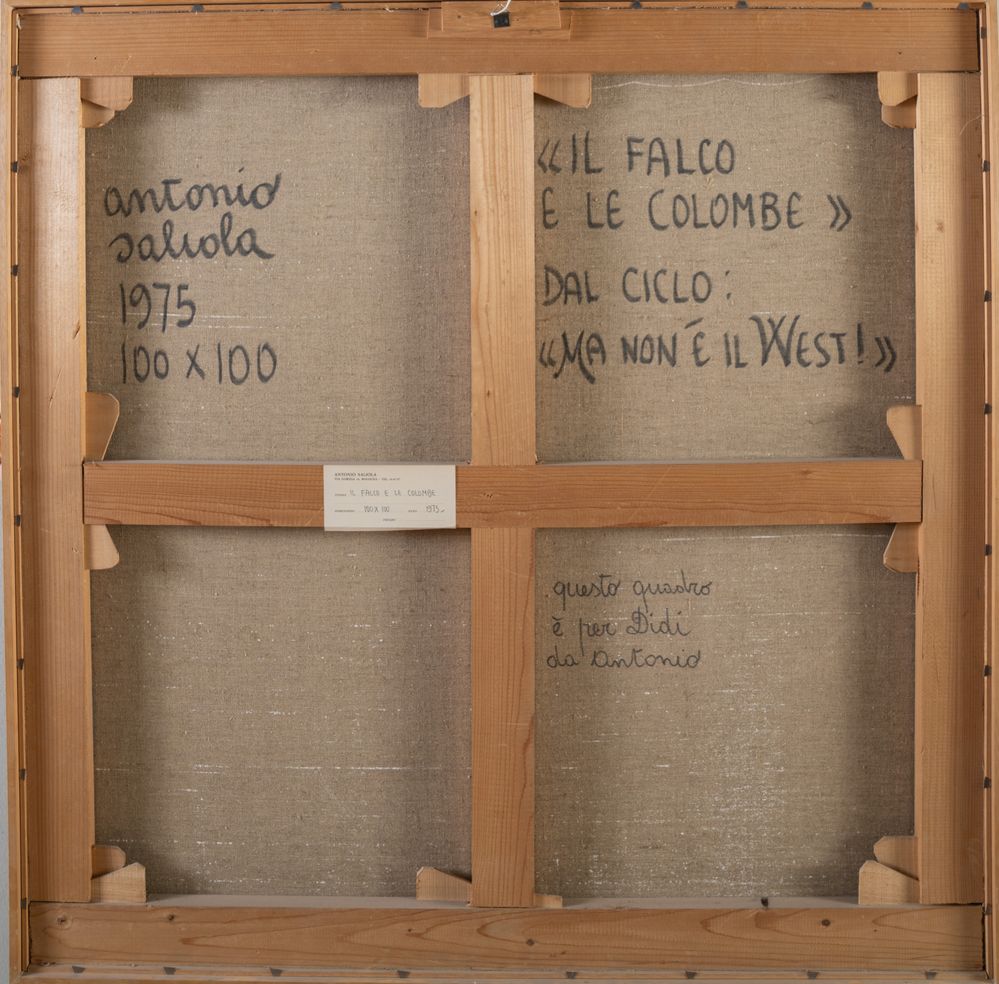 antonio
saliola
1975
100 X 100
«IL FALCO
E LE COLOMBE »
DAL CICLO :
«MA NON É IL WEST! »
ANTONIO SALIOLA
IL FALCO E LE COLOMBE
100 X 100 1975
questo quadro
è per Didi
da Antonio